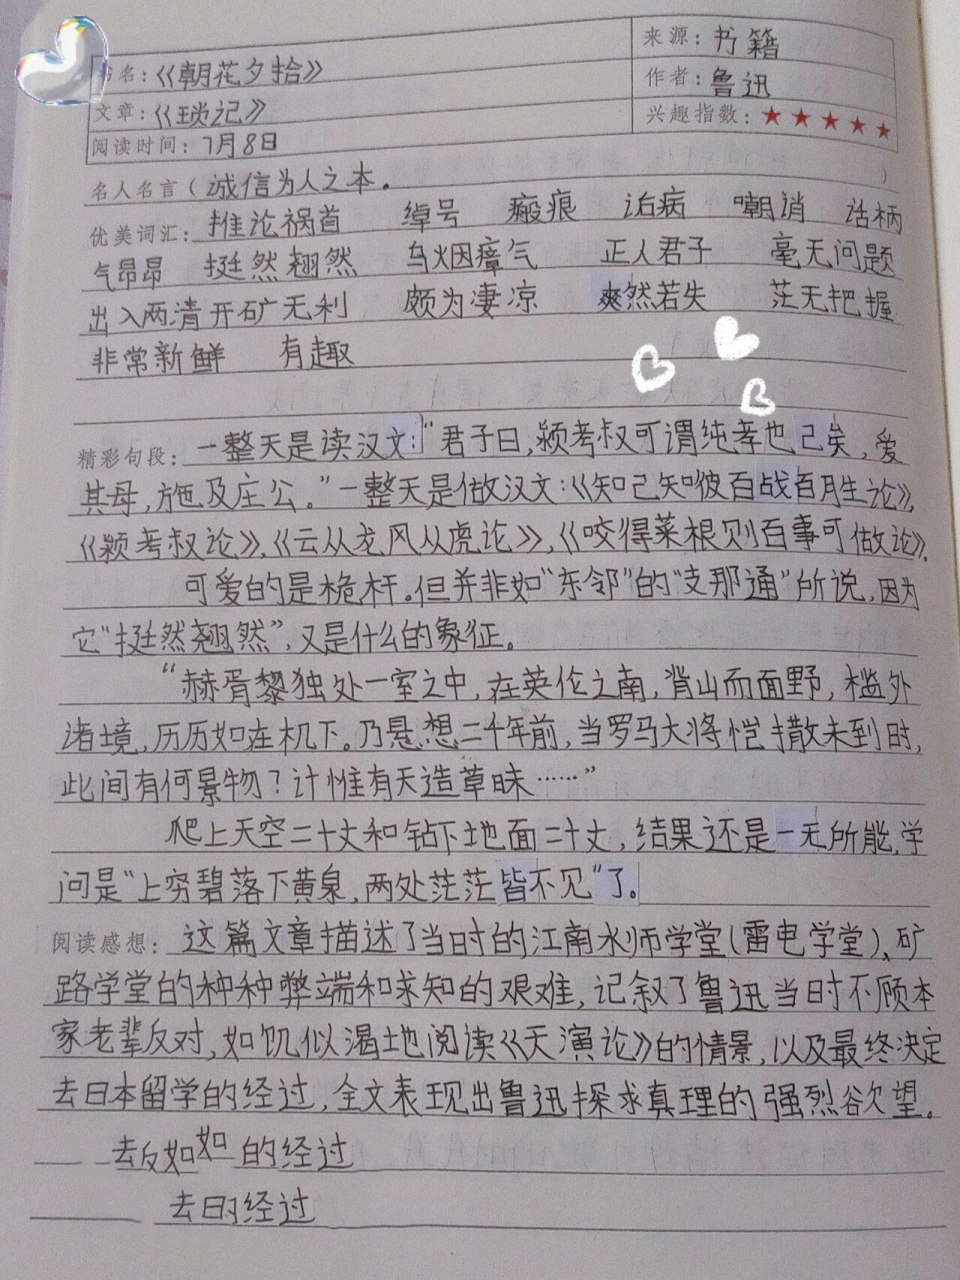 书名：《朝花夕拾》
来源：书籍
文章：《琐记》
作者：鲁迅
阅读时间：7月8日
兴趣指数：★★★★★
名人名言（诚信为人之本。）
优美词汇：推论祸首 绰号 瘢痕 诟病 嘲诮 话柄
气昂昂 挺然翘然 乌烟瘴气 正人君子 毫无问题
出入两清开矿无利 颇为凄凉 爽然若失 茫无把握
非常新鲜 有趣
精彩句段：一整天是读汉文：“君子曰，颍考叔可谓纯孝也已矣，爱
其母，施及庄公。”一整天是做汉文：《知己知彼百战百胜论》，
《颍考叔论》，《云从龙风从虎论》，《咬得菜根则百事可做论》。
可爱的是桅杆。但并非如“东邻”的“支那通”所说，因为
它“挺然翘然”，又是什么的象征。
“赫胥黎独处一室之中，在英伦之南，背山而面野，槛外
诸境，历历如在机下。乃悬想二千年前，当罗马大将恺撒未到时，
此间有何景物？计惟有天造草昧……”
爬上天空二十丈和钻下地面二十丈，结果还是一无所能，学
问是“上穷碧落下黄泉，两处茫茫皆不见”了。
阅读感想：这篇文章描述了当时的江南水师学堂（雷电学堂）、矿
路学堂的种种弊端和求知的艰难，记叙了鲁迅当时不顾本
家老辈反对，如饥似渴地阅读《天演论》的情景，以及最终决定
去日本留学的经过，全文表现出鲁迅探求真理的强烈欲望。
去反如如的经过
去日的经过